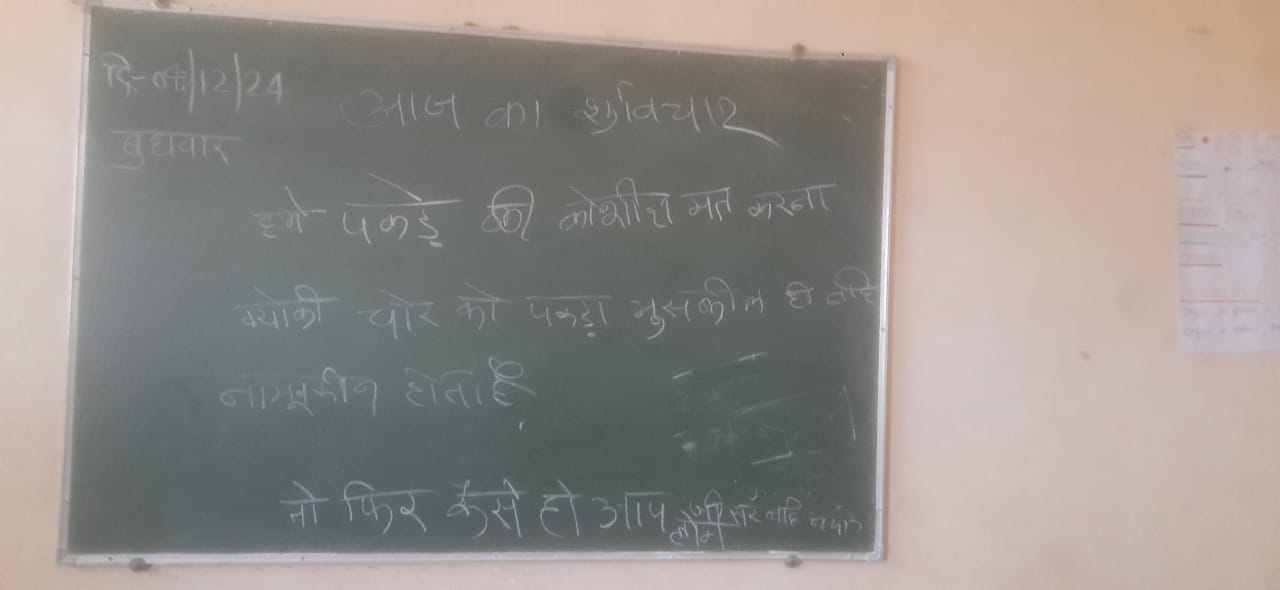 दि- 04/12/24
बुधवार
आज का शुविचार
हमे पकडे़ की कोशीश मत करना
क्योकी चोर को पकड़ा मुसकील ही नहि
नामूमकीन होता है
तो फिर कैसे हो आप लोग